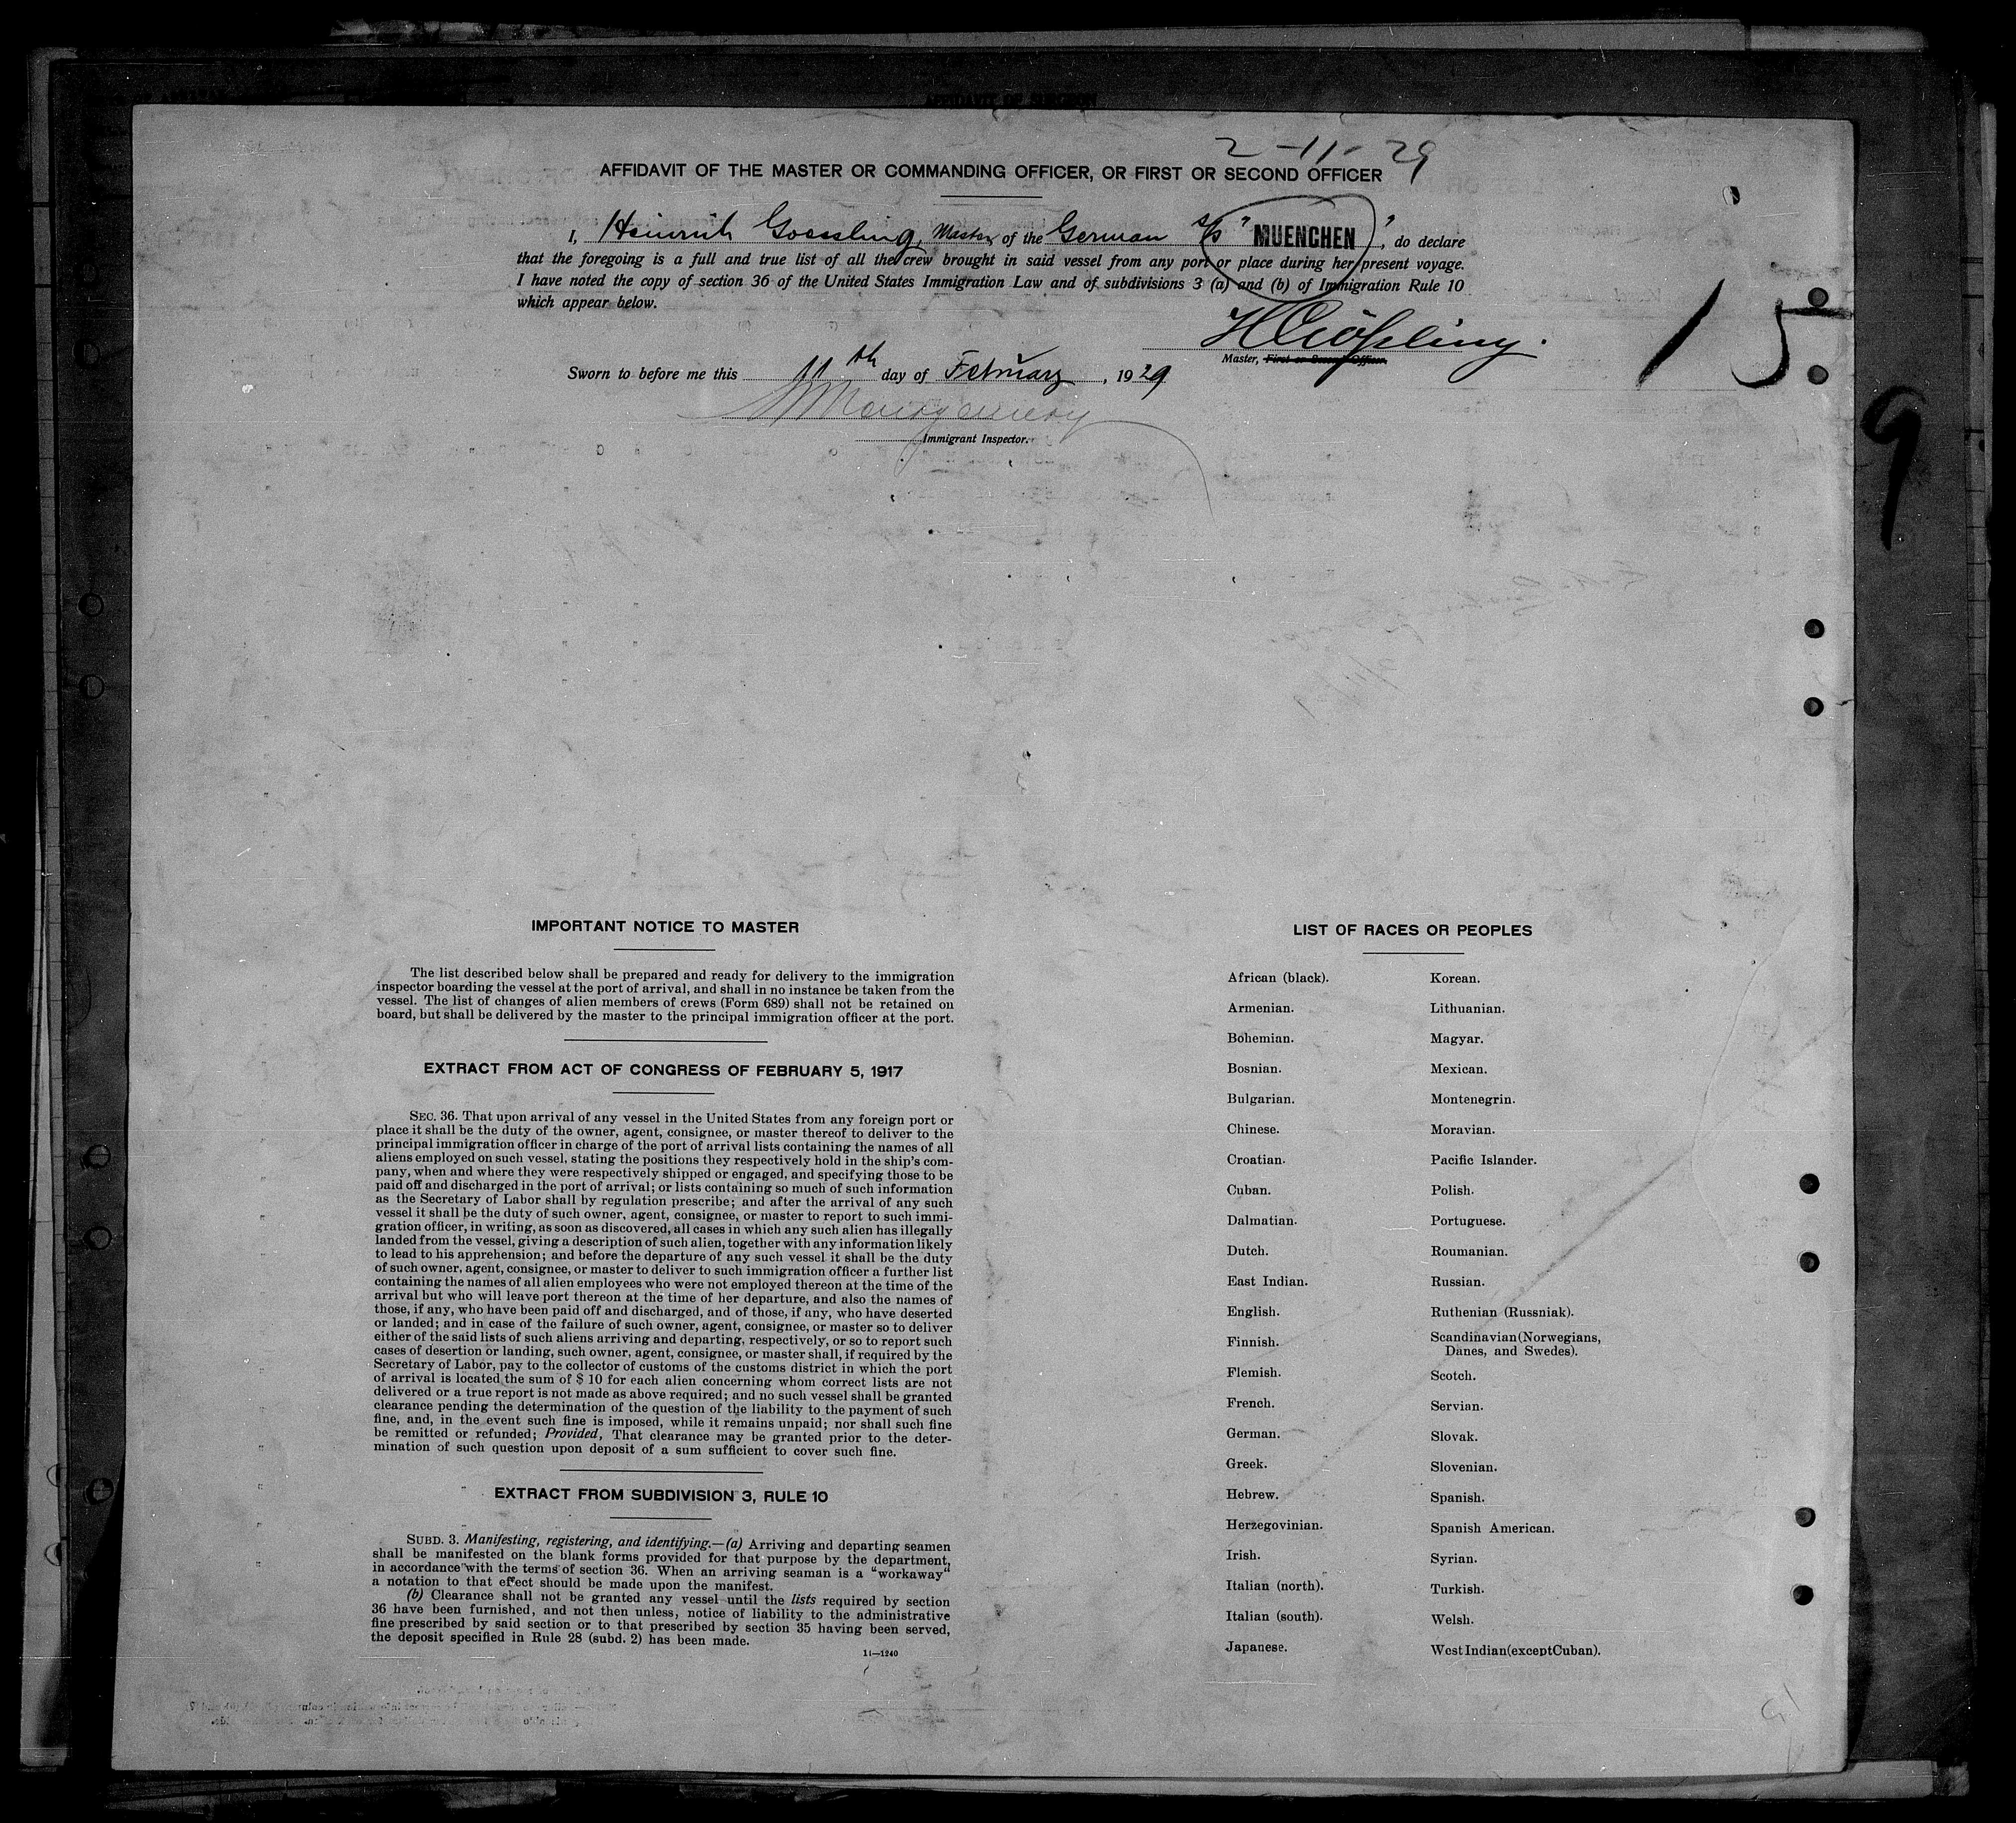 2-11-29
AFFIDAVIT OF THE MASTER OR COMMANDING OFFICER, OR FIRST OR SECOND OFFICER
I, Heinrich Goessling, Master of the German S/S "MUENCHEN", do declare
that the foregoing is a full and true list of all the crew brought in said vessel from any port or place during her present voyage.
I have noted the copy of section 36 of the United States Immigration Law and of subdivisions 3 (a) and (b) of Immigration Rule 10
which appear below.
H Gößling.
Master, First or Second Officer.
15
9
Sworn to before me this 11th day of February, 1929
Montgomery
Immigrant Inspector.
IMPORTANT NOTICE TO MASTER
The list described below shall be prepared and ready for delivery to the immigration
inspector boarding the vessel at the port of arrival, and shall in no instance be taken from the
vessel. The list of changes of alien members of crews (Form 689) shall not be retained on
board, but shall be delivered by the master to the principal immigration officer at the port.
EXTRACT FROM ACT OF CONGRESS OF FEBRUARY 5, 1917
SEC. 36. That upon arrival of any vessel in the United States from any foreign port or
place it shall be the duty of the owner, agent, consignee, or master thereof to deliver to the
principal immigration officer in charge of the port of arrival lists containing the names of all
aliens employed on such vessel, stating the positions they respectively hold in the ship's com-
pany, when and where they were respectively shipped or engaged, and specifying those to be
paid off and discharged in the port of arrival; or lists containing so much of such information
as the Secretary of Labor shall by regulation prescribe; and after the arrival of any such
vessel it shall be the duty of such owner, agent, consignee, or master to report to such immi-
gration officer, in writing, as soon as discovered, all cases in which any such alien has illegally
landed from the vessel, giving a description of such alien, together with any information likely
to lead to his apprehension; and before the departure of any such vessel it shall be the duty
of such owner, agent, consignee, or master to deliver to such immigration officer a further list
containing the names of all alien employees who were not employed thereon at the time of the
arrival but who will leave port thereon at the time of her departure, and also the names of
those, if any, who have been paid off and discharged, and of those, if any, who have deserted
or landed; and in case of the failure of such owner, agent, consignee, or master so to deliver
either of the said lists of such aliens arriving and departing, respectively, or so to report such
cases of desertion or landing, such owner, agent, consignee, or master shall, if required by the
Secretary of Labor, pay to the collector of customs of the customs district in which the port
of arrival is located the sum of $ 10 for each alien concerning whom correct lists are not
delivered or a true report is not made as above required; and no such vessel shall be granted
clearance pending the determination of the question of the liability to the payment of such
fine, and, in the event such fine is imposed, while it remains unpaid; nor shall such fine
be remitted or refunded; Provided, That clearance may be granted prior to the deter-
mination of such question upon deposit of a sum sufficient to cover such fine.
EXTRACT FROM SUBDIVISION 3, RULE 10
SUBD. 3. Manifesting, registering, and identifying.—(a) Arriving and departing seamen
shall be manifested on the blank forms provided for that purpose by the department,
in accordance with the terms of section 36. When an arriving seaman is a "workaway"
a notation to that effect should be made upon the manifest.
(b) Clearance shall not be granted any vessel until the lists required by section
36 have been furnished, and not then unless, notice of liability to the administrative
fine prescribed by said section or to that prescribed by section 35 having been served,
the deposit specified in Rule 28 (subd. 2) has been made.
11—1240
LIST OF RACES OR PEOPLES
African (black).
Armenian.
Bohemian.
Bosnian.
Bulgarian.
Chinese.
Croatian.
Cuban.
Dalmatian.
Dutch.
East Indian.
English.
Finnish.
Flemish.
French.
German.
Greek.
Hebrew.
Herzegovinian.
Irish.
Italian (north).
Italian (south).
Japanese.
Korean.
Lithuanian.
Magyar.
Mexican.
Montenegrin.
Moravian.
Pacific Islander.
Polish.
Portuguese.
Roumanian.
Russian.
Ruthenian (Russniak).
Scandinavian (Norwegians,
Danes, and Swedes).
Scotch.
Servian.
Slovak.
Slovenian.
Spanish.
Spanish American.
Syrian.
Turkish.
Welsh.
West Indian (except Cuban).